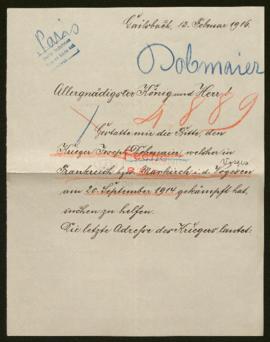 Gaisbach, 12. Februar 1916.
Paris
Dobmaier
Allergnädigster König und Herr!
4889
Gestatte mir die Bitte, den
Krieger Josef Dobmaier, welcher in
Vogesen
Frankreich bzw. Markirch i. d. Vogesen
am 20. September 1914 gekämpft hat,
suchen zu helfen.
Die letzte Adresse des Kriegers lautet: